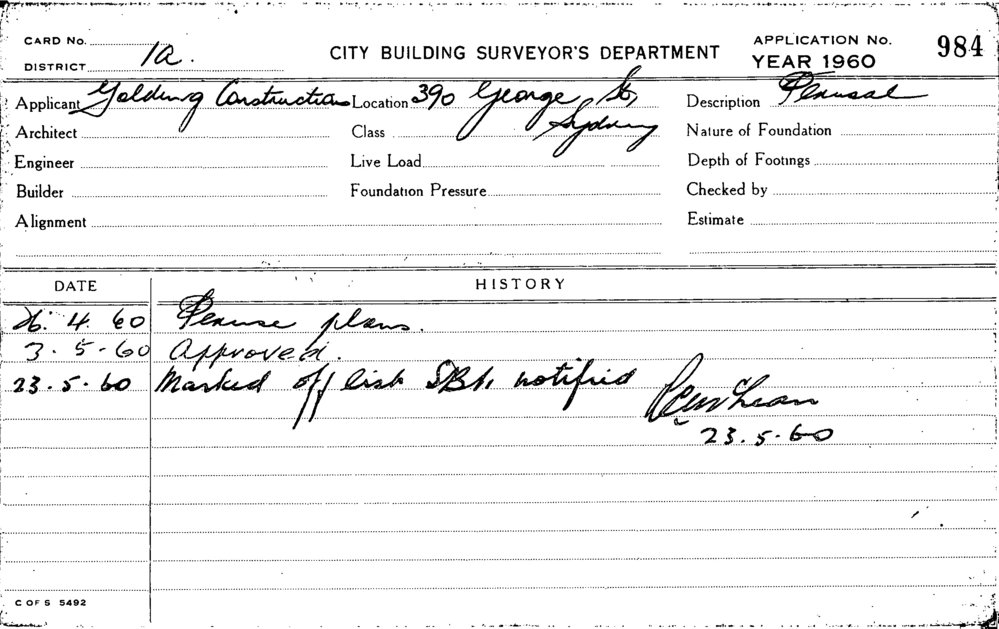 CARD No.
DISTRICT 1a.
CITY BUILDING SURVEYOR'S DEPARTMENT
APPLICATION No. 984
YEAR 1960
Applicant Golding Constructions Location 390 George St, Description Perusal
Architect Class Sydney Nature of Foundation
Engineer Live Load Depth of Footings
Builder Foundation Pressure Checked by
Alignment Estimate
DATE HISTORY
26. 4. 60 Peruse plans.
3. 5. 60 Approved.
23. 5. 60 Marked off list notified
23. 5. 60
C OF S 5492